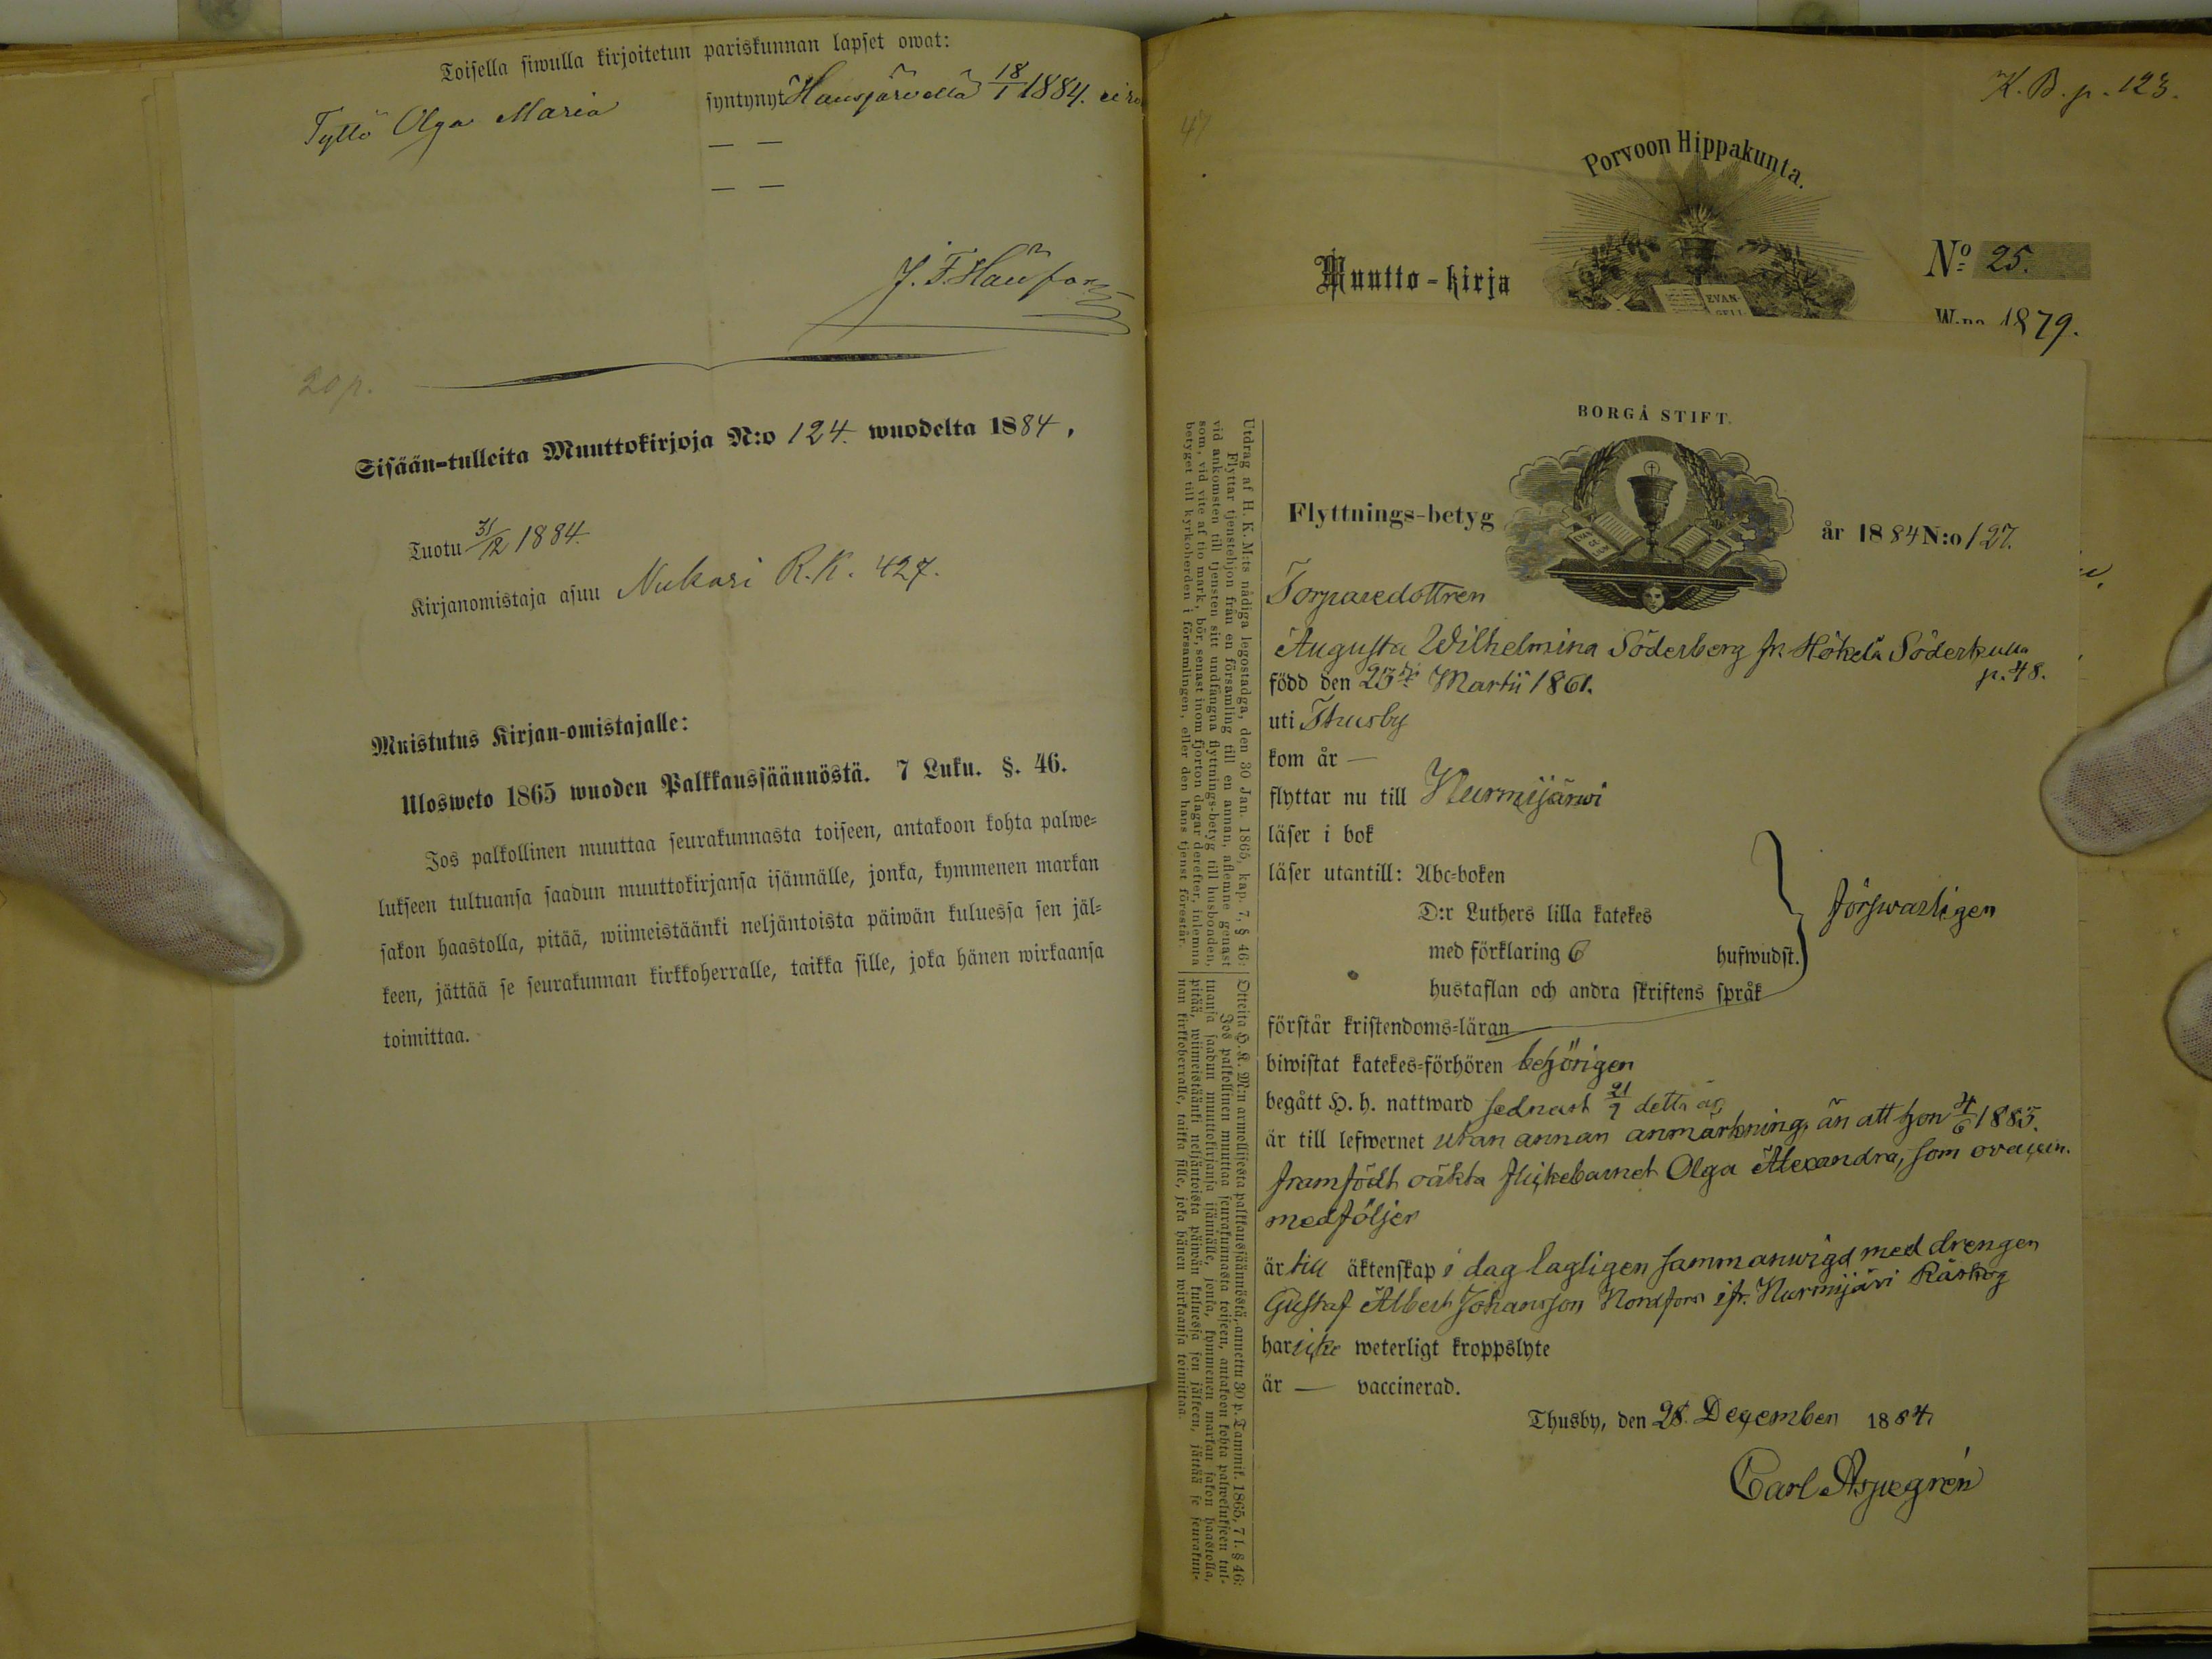 Toisella siwulla kirjoitetun pariskunnan lapset owat:
Tyttö Olga Maria syntynyt Hausjärvellä 18/1 1884. ei ro
— —
— —
20 p.
Sisään-tulleita Muuttokirjoja N:o 124. wuodelta 1884.
Tuotu 31/12 1884.
Kirjanomistaja asuu Nukari R.K. 427.
Muistutus Kirjan-omistajalle:
Ulosweto 1865 wuoden Palkkaussäännöstä. 7 Luku. §. 46.
Jos palkollinen muuttaa seurakunnasta toiseen, antakoon kohta palwe=
lukseen tultuansa saadun muuttokirjansa isännälle, jonka, kymmenen markan
sakon haastolla, pitää, wiimeistäänki neljäntoista päiwän kuluessa sen jäl=
keen, jättää se seurakunnan kirkkoherralle, taikka sille, joka hänen wirkaansa
toimittaa.
47
K. B. p. 123.
Porvoon Hippakunta.
Muutto-kirja
EVAN-
GELI
No 25.
W:na 1879.
BORGÅ STIFT.
Flyttnings-betyg
år 1884 N:o 127.
Torparedottren
Augusta Wilhelmina Söderberg fr. Hökelä Söderkulla
p. 48.
född den 23 Martii 1861.
uti Thusby
kom år —
flyttar nu till Nurmijärwi
läser i bok
läser utantill: Abc=boken
D:r Luthers lilla katekes
med förklaring 6 hufwudst.
hustaflan och andra skriftens språk
försvarligen
förstår kristendoms=läran
biwistat katekes=förhören behörigen
begått H. h. nattward sednast 21/7 detta år
är till lefwernet utan annan anmärkning, än att hon 4/6 1883.
framfödt oäkta flickebarnet Olga Alexandra, som ovaccin.
medföljer
är till äktenskap i dag lagligen sammanwigd med drengen
Gustaf Albert Johansson Nordfors ifr. Nurmijärvi
har icke weterligt kroppslyte
är — vaccinerad.
Thusby, den 28. December 1884
Carl Aspegrén
Utdrag af H. K. M:ts nådiga legostadga, den 30 Jan. 1865, kap. 7, § 46:
Flyttar tjenstehjon från en församling till en annan, aflemne genast
vid ankomsten till tjensten sitt undfångna flyttnings-betyg till husbonden,
som, vid vite af tio mark, bör, senast inom fjorton dagar derefter, inlemna
betyget till kyrkoherden i församlingen, eller den hans tjenst förestår.
Otteita H. K. M:n armollisesta palkkaussäännöstä, annettu 30 p. Tammik. 1865, 7 l. § 46:
Jos palkollinen muuttaa seurakunnasta toiseen, antakoon kohta palwelukseen tul-
tuansa saadun muuttokirjansa isännälle, jonka, kymmenen markan sakon haastolla,
pitää, wiimeistäänki neljäntoista päiwän kuluessa sen jälkeen, jättää se seurakun-
nan kirkkoherralle, taikka sille, joka hänen wirkaansa toimittaa.